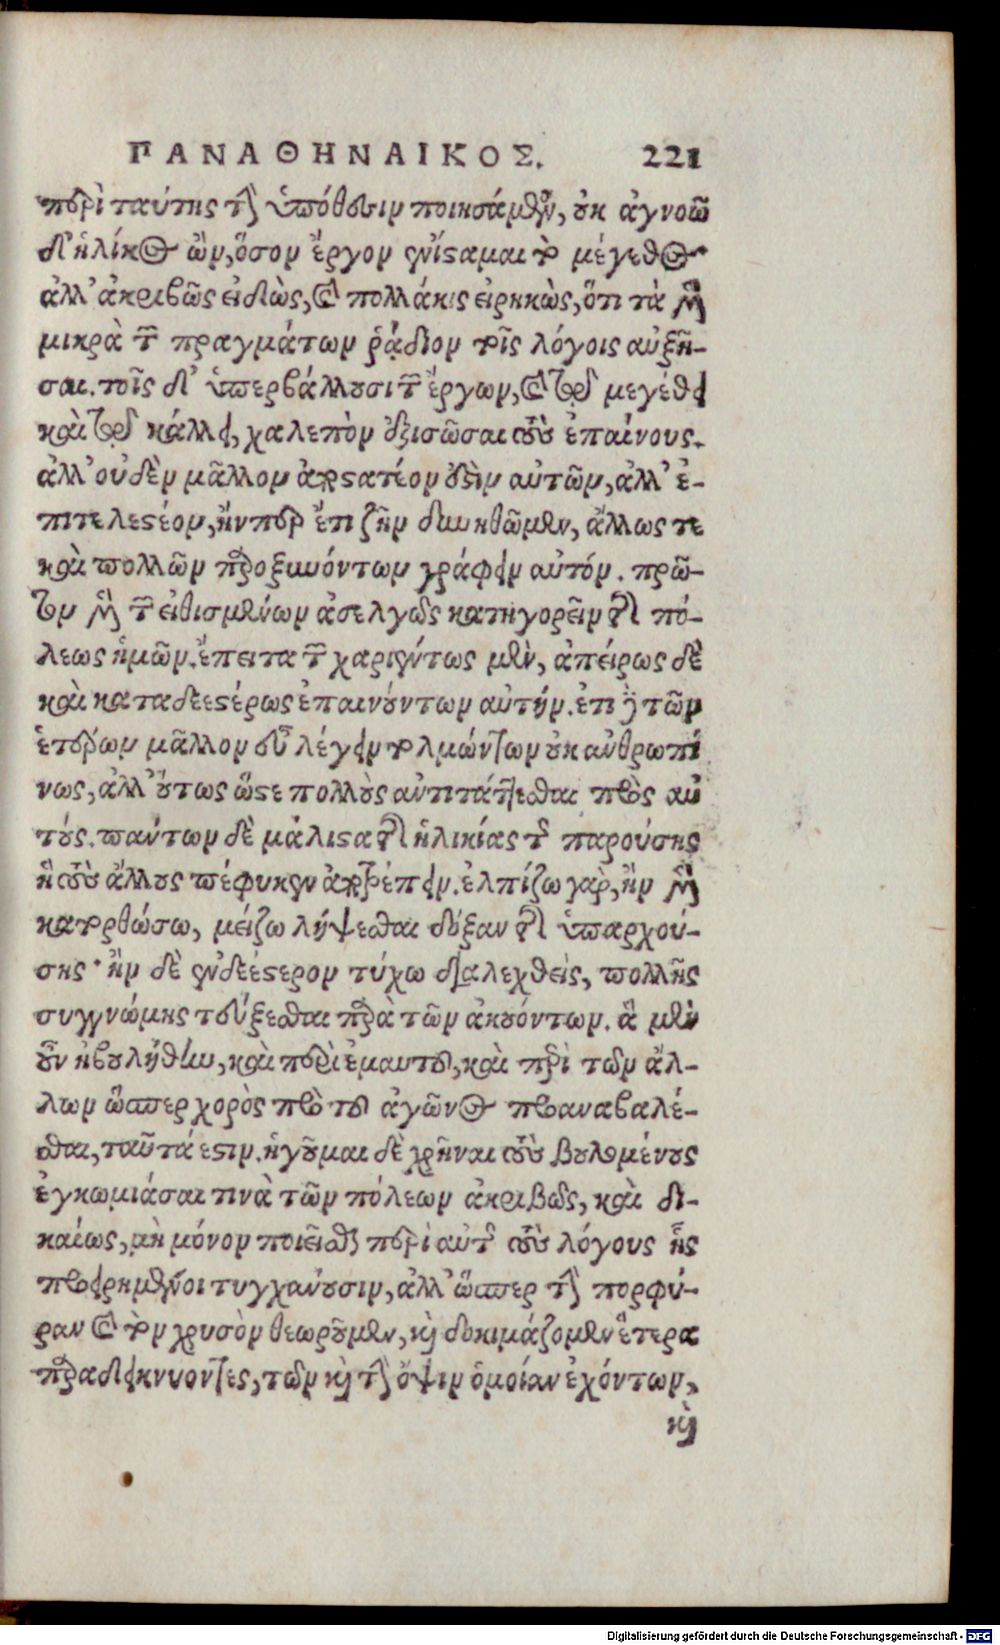 ΠΑΝΑΘΗΝΑΙΚΟΣ. 221
περὶ ταύτης τὴν ὑπόθεσιν ποιησάμενος, οὐκ ἀγνοῶ
δ' ἡλίκος ὢν, ὅσον ἔργον ἐνίσταμαι τὸ μέγεθος·
ἀλλ' ἀκριβῶς εἰδὼς, καὶ πολλάκις εἰρηκὼς, ὅτι τὰ μὲν
μικρὰ τῶν πραγμάτων ῥᾴδιον τοῖς λόγοις αὐξῆ-
σαι. τοῖς δ' ὑπερβάλλουσι τῶν ἔργων, καὶ τῷ μεγέθει
καὶ τῷ κάλλει, χαλεπὸν ἐξισῶσαι τοὺς ἐπαίνους.
ἀλλ' οὐδὲν μᾶλλον ἀποστατέον οὐδὲν αὐτῶν, ἀλλ' ἐ-
πιτελεστέον, ἤν περ ἔτι ζῆν δυνηθῶμεν, ἄλλως τε
καὶ πολλῶν παροξυνόντων γράφειν αὐτόν. πρῶ-
τον μὲν τῶν εἰθισμένων ἀσελγῶς κατηγορεῖν τῆς πό-
λεως ἡμῶν. ἔπειτα τῶν χαριέντως μὲν, ἀπείρως δὲ
καὶ καταδεεστέρως ἐπαινούντων αὐτήν. ἔτι δὲ τῶν
ἑτέρων μᾶλλον εὖ λέγειν τολμώντων οὐκ ἀνθρωπί
νως, ἀλλ' οὕτως ὥστε πολλοὺς ἀντιτάττεσθαι πρὸς αὐ
τούς. πάντων δὲ μάλιστα τῆς ἡλικίας τῆς παρούσης
ἣ τοὺς ἄλλους πέφυκεν ἀποτρέπειν. ἐλπίζω γὰρ, ἢν μὲν
κατορθώσω, μείζω λήψεσθαι δόξαν τῆς ὑπαρχού-
σης· ἢν δὲ ἐνδεέστερον τύχω διαλεχθεὶς, πολλῆς
συγγνώμης τεύξεσθαι παρὰ τῶν ἀκουόντων. ἃ μὲν
οὖν ἠβουλήθην, καὶ περὶ ἐμαυτοῦ, καὶ περὶ τῶν ἄλ-
λων ὥσπερ χορὸς πρὸ τοῦ ἀγῶνος προαναβαλέ-
σθαι, ταῦτά ἐστιν. ἡγοῦμαι δὲ χρῆναι τοὺς βουλομένους
ἐγκωμιάσαι τινὰ τῶν πόλεων ἀκριβῶς, καὶ δι-
καίως, μὴ μόνον ποιεῖσθαι περὶ αὐτῆς τοὺς λόγους ἧς
προειρημένοι τυγχάνουσιν, ἀλλ' ὥσπερ τὴν πορφύ-
ραν καὶ τὸν χρυσὸν θεωροῦμεν, καὶ δοκιμάζομεν ἕτερα
παραδεικνύοντες, τῶν καὶ τὴν ὄψιν ὁμοίαν ἐχόντων,
καὶ
Digitalisierung gefördert durch die Deutsche Forschungsgemeinschaft - DFG